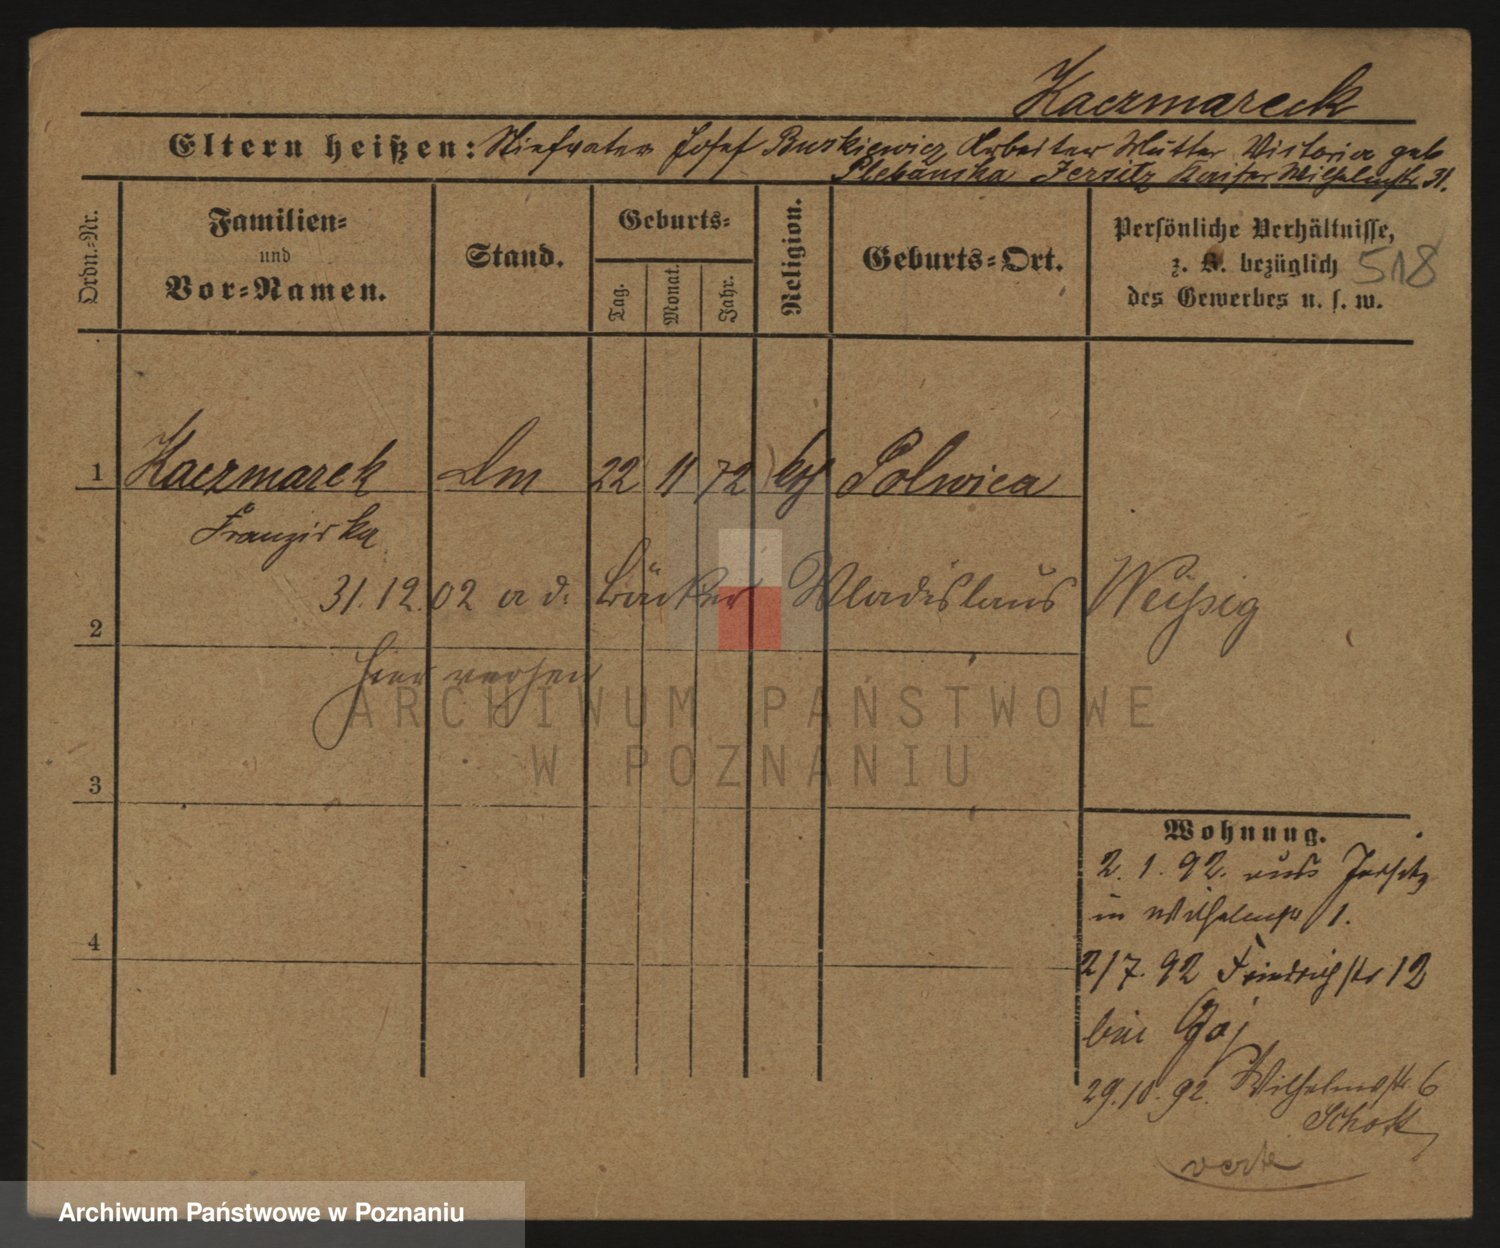 Kaczmareck
Eltern heißen: Stiefvater Josef Buskiewicz Arbeiter Mutter Victoria geb
Plebanska Jersitz Kaiser Wilhelmstr. 31.
Ordn.=Nr.
Familien=
und
Vor=Namen.
Stand.
Geburts=
Tag.
Monat.
Jahr.
Religion.
Geburts=Ort.
Persönliche Verhältnisse,
z. B. bezüglich
des Gewerbes u. s. w.
518
1 Kaczmarek Dm 22 11 72 kth Polwica
Franziska
31.12.02 a d. Bäcker Wladislaus Weißig
2
hier verh
3
Wohnung.
2. 1. 92. aus Jersitz
in Wilhelmstr 1.
4
2/7. 92 Friedrichstr 12
bei Gaj
29.10.92. Wilhelmstr 6
Schott
verte
ARCHIWUM PAŃSTWOWE
W POZNANIU
Archiwum Państwowe w Poznaniu